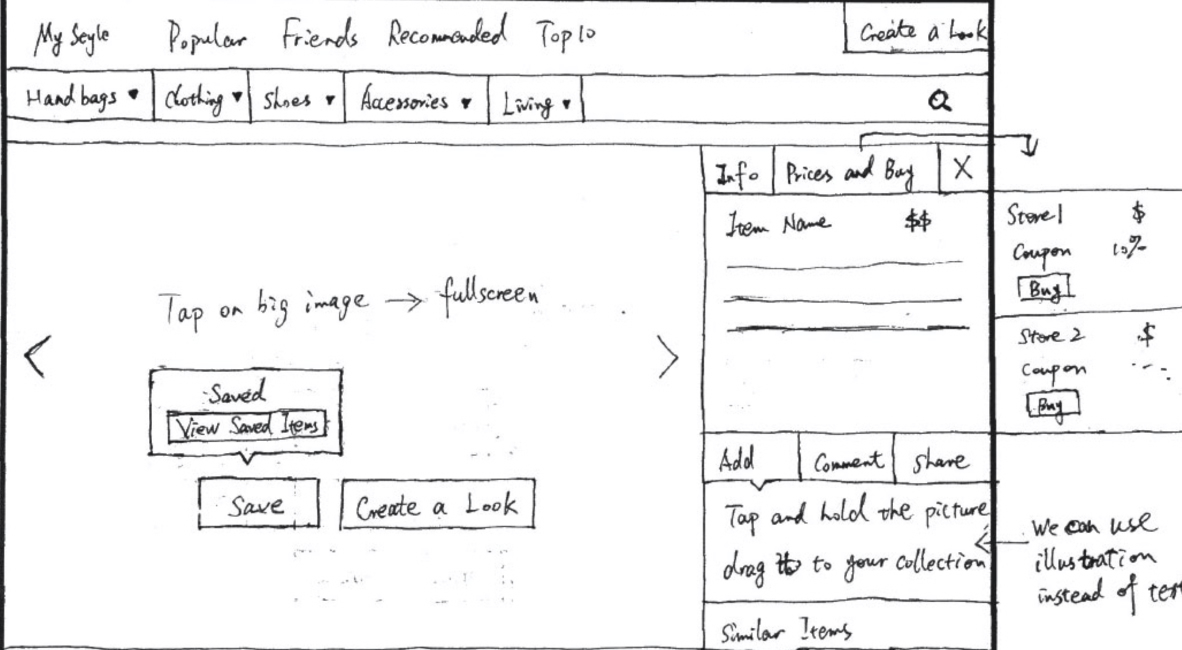 My Seyle Popular Friends Recommended Top 10 Create a Look
Handbags ▼ Clothing ▼ Shoes ▼ Accessories ▼ Living ▼
Info Prices and Buy X
Item Name $$
Store 1 $
Coupon 10%
Buy
Store 2 $
Coupon
Buy
Tap on big image → fullscreen
< >
Saved
View Saved Items
Save Create a Look
Add Comment Share
Tap and hold the picture
drag to your collection
We can use
illustration
instead of
Similar Items